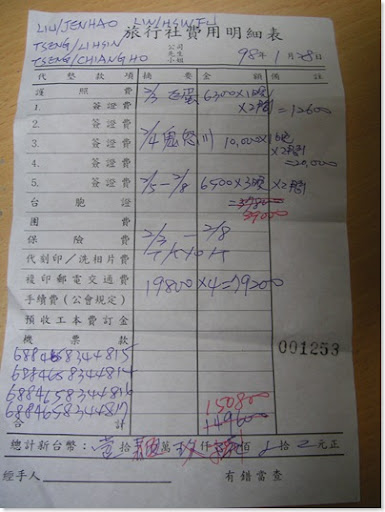 LIU/JENHAO LIN/HSINFU
旅行社費用明細表
TSENG/LIHSIN
TSENG/CHIANGHO
公司
先生
小姐
98年1月28日
代墊款項 摘要 金額 備註
護照費 2/3 6300×1間
×2間 =12600
1. 簽證費
2. 簽證費 2/4 10,000×1間
3. 簽證費 ×2間
4. 簽證費 =20,000
5. 簽證費 2/5-2/8 6500×3 ×2間
台胞證 39000
團費
保險費 2/3-2/8
代刻印/洗相片費
複印郵電交通費 19800×4=79200
手續費(公會規定)
預收工本費訂金
機票款
6884658344815
6884658344814
6884658344816
6884658344817
001253
150800
合計 149600
總計新台幣:壹拾 萬 仟 佰 拾 元正
經手人 有錯當查